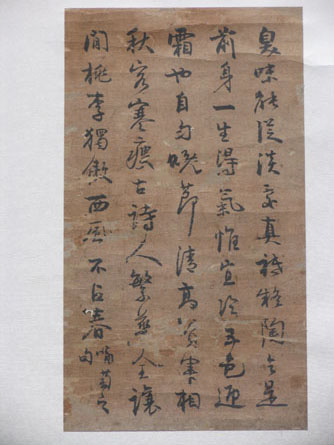 臭味能從淡處真疑陶令是
前身一生得氣惟宜冷五色迎
霜也自勻晚節清高賢宰相
秋容寒瘦古詩人繁華全讓
閒桃李獨傲西風不占春詠菊之
句